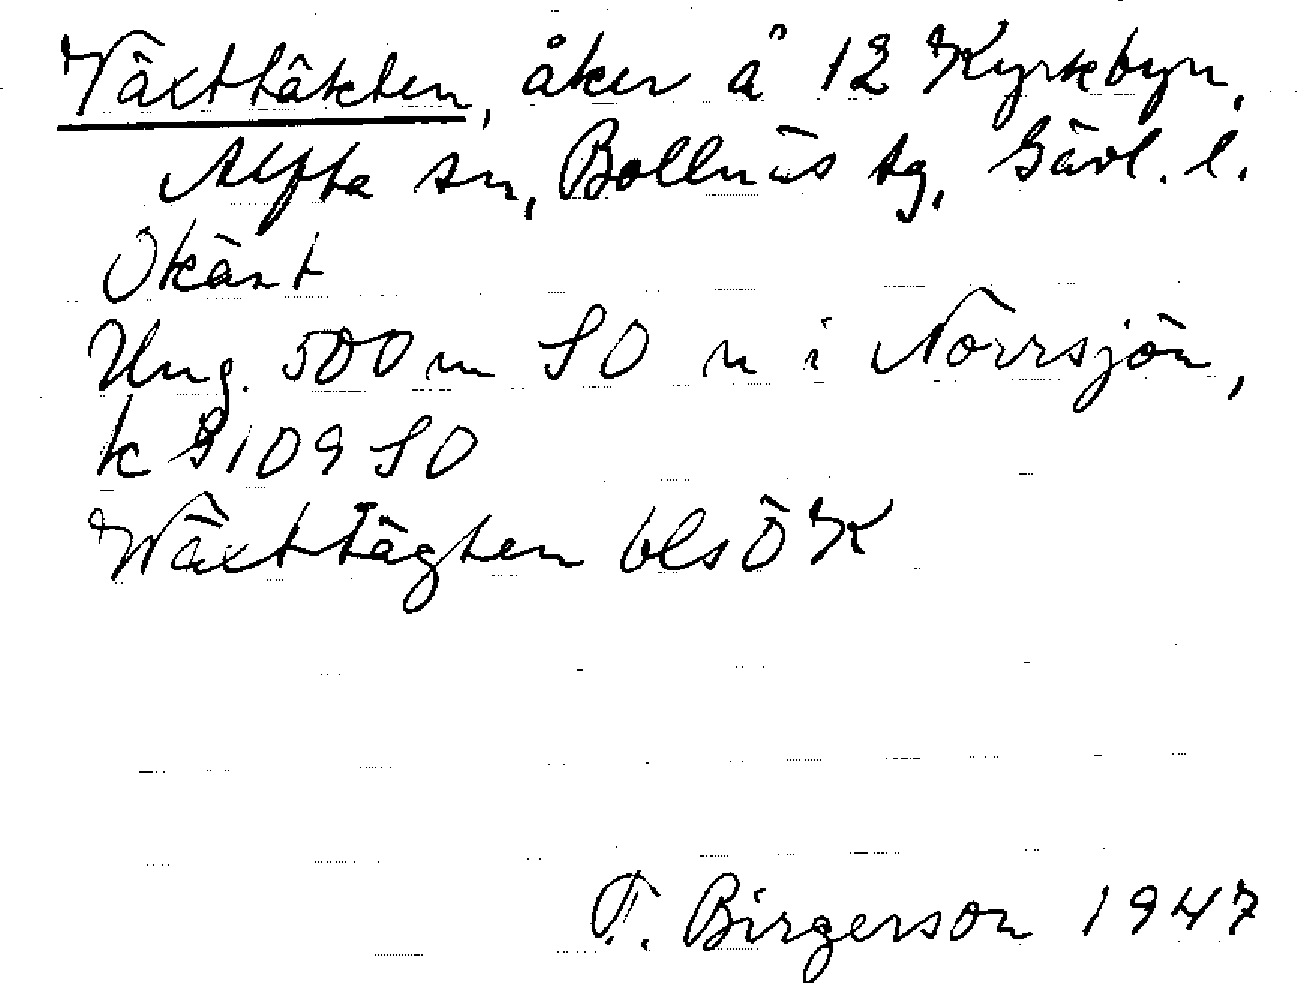 Växttäkten, åker å 12 Kyrkbyn,
Alfta sn, Bollnäs tg, Gävl. l.
Okänt
Ung. 500 m SO n i Norrsjön,
k 9109 SO
Wäxttägten bls Ö K
T. Birgerson 1947